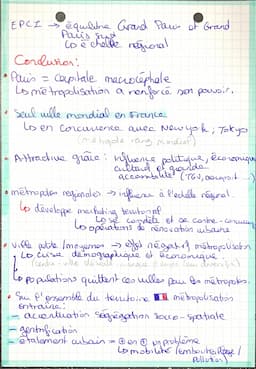 EPCI → équilibre Grand Paris et Grand
Paris Sud
↳ échelle régional
Conclusion:
• Paris = Capitale macrocéphale
↳ métropolisation a renforcé son pouvoir.
• Seul ville mondial en France
↳ en concurrence avec New York, Tokyo
(métropole rang mondial)
• Attractive grâce: influence politique, économique
culturel et grande
accessibilité (TGV, aéroport ...)
• métropoles régionales → influence à l'échelle régional.
↳ développe marketing territorial
↳ se complète et se contre-
↳ opérations de rénovation urbaine
• Ville petite/moyennes → effet négatif métropolisation
↳ crise démographique et économique
↳ populations quittent ces villes pour les métropoles.
• Sur l'ensemble du territoire 🇫🇷 métropolisation
entraîne:
- accentuation ségrégation socio-spatiale
- gentrification
- étalement urbain = ⊕ en ⊕ problème
↳ mobilité (embouteillage/
Pollution)